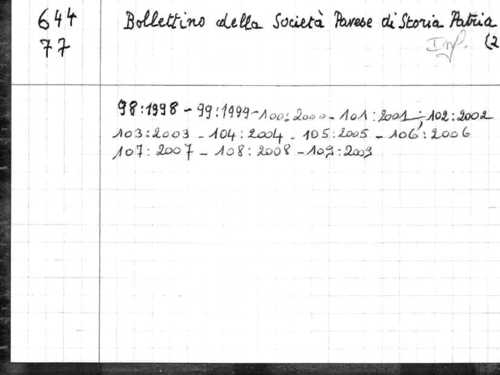 644 Bollettino della Società Pavese di Storia Patria
77 (2
98:1998 - 99:1999 - 100:2000 - 101:2001 ; 102:2002
103:2003 - 104:2004 - 105:2005 - 106:2006
107:2007 - 108:2008 - 109:2009